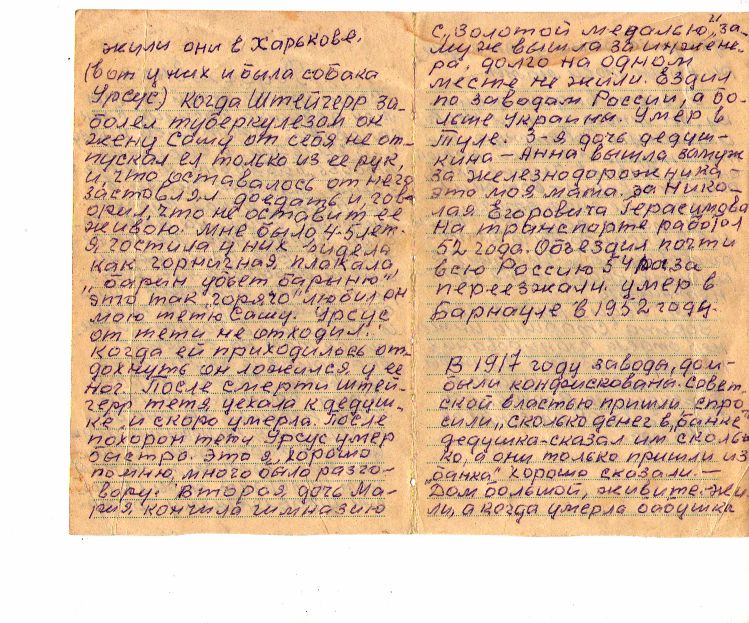 жили они в Харькове.
(вот у них и была собака
Урсус) когда Штейгерр за-
болел туберкулезом он
жену Сашу от себя не от-
пускал ел только из ее рук,
и, что оставалось от него
заставлял доедать и, гов-
орил, что не оставит ее
живою. Мне было 4-5 лет.
Я гостила у них видела
как горничная плакала
"барин убьет барыню"
это так "горячо" любил он
мою тетю Сашу. Урсус
от тети не отходил!
когда ей приходилось от-
дохнуть он ложился у ее
ног. После смерти Штей-
герр тетя уехала к дедуш-
ке и скоро умерла. После
похорон тети Урсус умер
быстро. Это я хорошо
помню, много было разго-
вору. Вторая дочь Ма-
рия кончила гимназию
с "золотой медалью", за-
муж вышла за инжене-
ра, долго на одном
месте не жили. Ездил
по заводам России, а бо-
льше Украины. Умер в
Туле. 3-я дочь дедуш-
кина - Анна вышла замуж
за железнодорожника -
это моя мама. за Нико-
лая Егоровича Герасимова
На транспорте работал
52 года. Объездил почти
всю Россию 54 раза
переезжали. умер в
Барнауле в 1952 году.
В 1917 году завода, дом -
были конфискована. совет-
ской властью пришли спро-
сили, "сколько денег в банке"
дедушка - сказал им сколь-
ко, а они только пришли из
"банка" хорошо сказали. -
Дом большой, живите. жи-
ли, а когда умерла бабушка